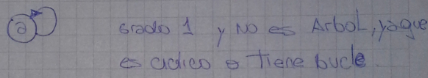 a
Grado 1 y NO es Arbol, ya que
es ciclico o tiene bucle.